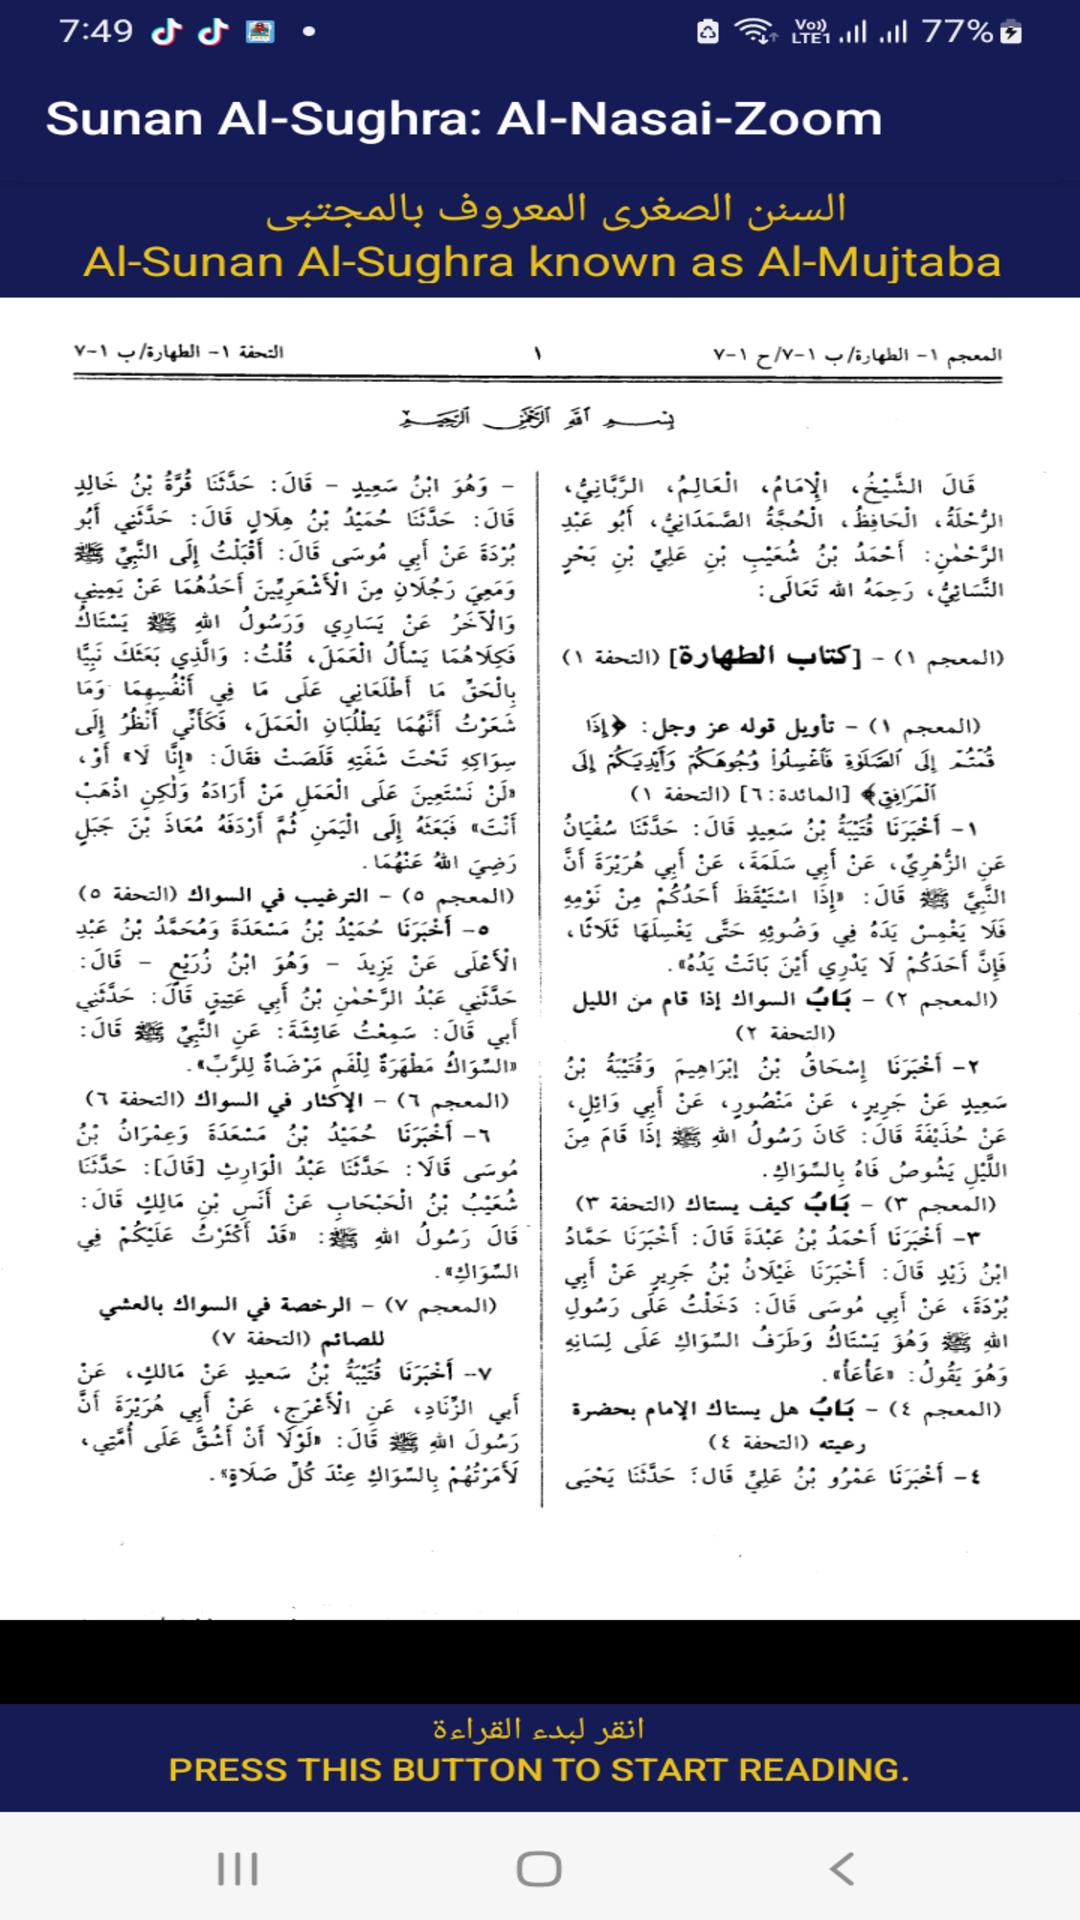 7:49
Vo)) LTE1 77%
Sunan Al-Sughra: Al-Nasai-Zoom
السنن الصغرى المعروف بالمجتبى
Al-Sunan Al-Sughra known as Al-Mujtaba
المعجم ١- الطهارة/ ب ١-٧/ ح ١-٧
١
التحفة ١- الطهارة/ ب ١-٧
بِسْمِ اللَّهِ الرَّحْمَٰنِ الرَّحِيمِ
قَالَ الشَّيْخُ، الْإِمَامُ، الْعَالِمُ، الرَّبَّانِيُّ،
الرُّحْلَةُ، الْحَافِظُ، الْحُجَّةُ الصَّمَدَانِيُّ، أَبُو عَبْدِ
الرَّحْمٰنِ: أَحْمَدُ بْنُ شُعَيْبِ بْنِ عَلِيِّ بْنِ بَحْرٍ
النَّسَائِيُّ، رَحِمَهُ الله تَعَالَى:
(المعجم ١) - [كتاب الطهارة] (التحفة ١)
(المعجم ١) - تأويل قوله عز وجل: ﴿إِذَا
قُمْتُمْ إِلَى الصَّلَوٰةِ فَاغْسِلُوا وُجُوهَكُمْ وَأَيْدِيَكُمْ إِلَى
الْمَرَافِقِ﴾ [المائدة: ٦] (التحفة ١)
١- أَخْبَرَنَا قُتَيْبَةُ بْنُ سَعِيدٍ قَالَ: حَدَّثَنَا سُفْيَانُ
عَنِ الزُّهْرِيِّ، عَنْ أَبِي سَلَمَةَ، عَنْ أَبِي هُرَيْرَةَ أَنَّ
النَّبِيَّ ﷺ قَالَ: «إِذَا اسْتَيْقَظَ أَحَدُكُمْ مِنْ نَوْمِهِ
فَلَا يَغْمِسْ يَدَهُ فِي وَضُوئِهِ حَتَّى يَغْسِلَهَا ثَلَاثًا،
فَإِنَّ أَحَدَكُمْ لَا يَدْرِي أَيْنَ بَاتَتْ يَدُهُ».
(المعجم ٢) - بَابُ السواك إذا قام من الليل
(التحفة ٢)
٢- أَخْبَرَنَا إِسْحَاقُ بْنُ إِبْرَاهِيمَ وَقُتَيْبَةُ بْنُ
سَعِيدٍ عَنْ جَرِيرٍ، عَنْ مَنْصُورٍ، عَنْ أَبِي وَائِلٍ،
عَنْ حُذَيْفَةَ قَالَ: كَانَ رَسُولُ اللهِ ﷺ إِذَا قَامَ مِنَ
اللَّيْلِ يَشُوصُ فَاهُ بِالسِّوَاكِ.
(المعجم ٣) - بَابُ كيف يستاك (التحفة ٣)
٣- أَخْبَرَنَا أَحْمَدُ بْنُ عَبْدَةَ قَالَ: أَخْبَرَنَا حَمَّادُ
ابْنُ زَيْدٍ قَالَ: أَخْبَرَنَا غَيْلَانُ بْنُ جَرِيرٍ عَنْ أَبِي
بُرْدَةَ، عَنْ أَبِي مُوسَى قَالَ: دَخَلْتُ عَلَى رَسُولِ
اللهِ ﷺ وَهُوَ يَسْتَاكُ وَطَرَفُ السِّوَاكِ عَلَى لِسَانِهِ
وَهُوَ يَقُولُ: «عَأْعَأْ».
(المعجم ٤) - بَابُ هل يستاك الإمام بحضرة
رعيته (التحفة ٤)
٤- أَخْبَرَنَا عَمْرُو بْنُ عَلِيٍّ قَالَ: حَدَّثَنَا يَحْيَى
- وَهُوَ ابْنُ سَعِيدٍ - قَالَ: حَدَّثَنَا قُرَّةُ بْنُ خَالِدٍ
قَالَ: حَدَّثَنَا حُمَيْدُ بْنُ هِلَالٍ قَالَ: حَدَّثَنِي أَبُو
بُرْدَةَ عَنْ أَبِي مُوسَى قَالَ: أَقْبَلْتُ إِلَى النَّبِيِّ ﷺ
وَمَعِيَ رَجُلَانِ مِنَ الْأَشْعَرِيِّينَ أَحَدُهُمَا عَنْ يَمِينِي
وَالْآخَرُ عَنْ يَسَارِي وَرَسُولُ اللهِ ﷺ يَسْتَاكُ
فَكِلَاهُمَا يَسْأَلُ الْعَمَلَ، قُلْتُ: وَالَّذِي بَعَثَكَ نَبِيًّا
بِالْحَقِّ مَا أَطْلَعَانِي عَلَى مَا فِي أَنْفُسِهِمَا وَمَا
شَعَرْتُ أَنَّهُمَا يَطْلُبَانِ الْعَمَلَ، فَكَأَنِّي أَنْظُرُ إِلَى
سِوَاكِهِ تَحْتَ شَفَتِهِ قَلَصَتْ فَقَالَ: «إِنَّا لَا» أَوْ،
«لَنْ نَسْتَعِينَ عَلَى الْعَمَلِ مَنْ أَرَادَهُ وَلٰكِنِ اذْهَبْ
أَنْتَ» فَبَعَثَهُ إِلَى الْيَمَنِ ثُمَّ أَرْدَفَهُ مُعَاذَ بْنَ جَبَلٍ
رَضِيَ اللهُ عَنْهُمَا.
(المعجم ٥) - الترغيب في السواك (التحفة ٥)
٥- أَخْبَرَنَا حُمَيْدُ بْنُ مَسْعَدَةَ وَمُحَمَّدُ بْنُ عَبْدِ
الْأَعْلَى عَنْ يَزِيدَ - وَهُوَ ابْنُ زُرَيْعٍ - قَالَ:
حَدَّثَنِي عَبْدُ الرَّحْمٰنِ بْنُ أَبِي عَتِيقٍ قَالَ: حَدَّثَنِي
أَبِي قَالَ: سَمِعْتُ عَائِشَةَ: عَنِ النَّبِيِّ ﷺ قَالَ:
«السِّوَاكُ مَطْهَرَةٌ لِلْفَمِ مَرْضَاةٌ لِلرَّبِّ».
(المعجم ٦) - الإكثار في السواك (التحفة ٦)
٦- أَخْبَرَنَا حُمَيْدُ بْنُ مَسْعَدَةَ وَعِمْرَانُ بْنُ
مُوسَى قَالَا: حَدَّثَنَا عَبْدُ الْوَارِثِ [قَالَ]: حَدَّثَنَا
شُعَيْبُ بْنُ الْحَبْحَابِ عَنْ أَنَسِ بْنِ مَالِكٍ قَالَ:
قَالَ رَسُولُ اللهِ ﷺ: «قَدْ أَكْثَرْتُ عَلَيْكُمْ فِي
السِّوَاكِ».
(المعجم ٧) - الرخصة في السواك بالعشي
للصائم (التحفة ٧)
٧- أَخْبَرَنَا قُتَيْبَةُ بْنُ سَعِيدٍ عَنْ مَالِكٍ، عَنْ
أَبِي الزِّنَادِ، عَنِ الْأَعْرَجِ، عَنْ أَبِي هُرَيْرَةَ أَنَّ
رَسُولَ اللهِ ﷺ قَالَ: «لَوْلَا أَنْ أَشُقَّ عَلَى أُمَّتِي،
لَأَمَرْتُهُمْ بِالسِّوَاكِ عِنْدَ كُلِّ صَلَاةٍ».
انقر لبدء القراءة
PRESS THIS BUTTON TO START READING.